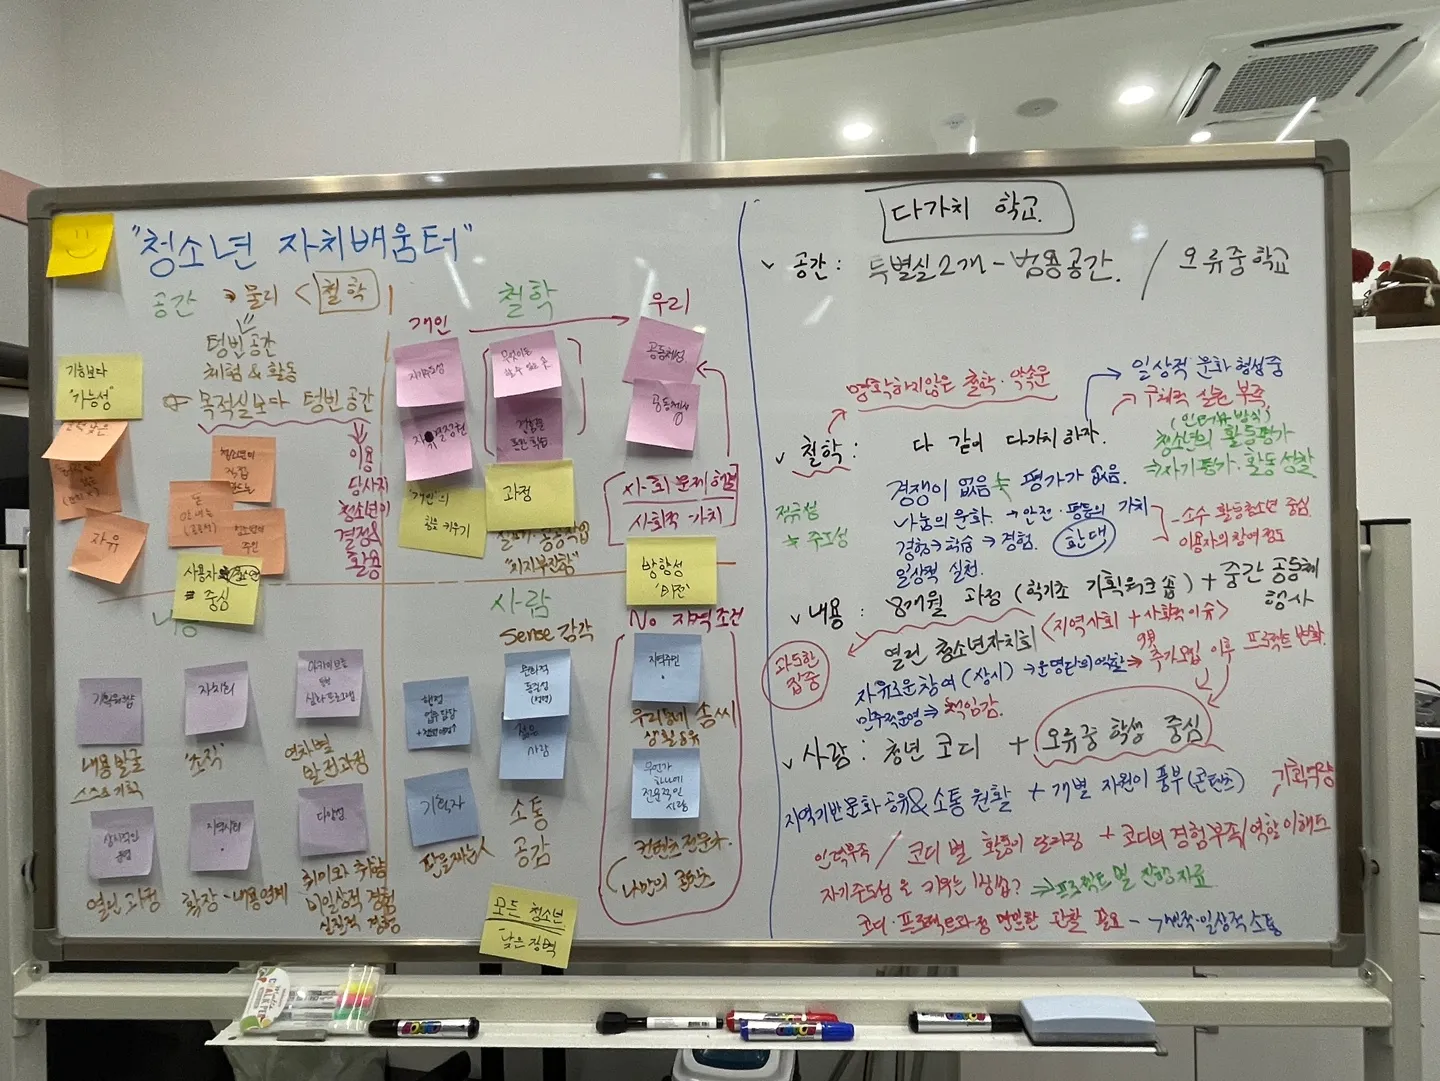 "청소년 자치배움터"
공간 → 물리 < 철학
텅빈 공간
체험 & 활동
목적실보다 텅빈 공간
이용
당사자
청소년이
결정&
활용
기능보다
"가능성"
자유
청소년이
직접
만드는
청소년이
주인
사용자
중심
철학
개인
우리
자기주도성
무엇이든
할 수 있는 곳
공동체성
자기결정권
공동체성
"개인"의
힘을 키우기
과정
공동작업
사회문제해결
사회적 가치
방향성
"비전"
기획워크숍
내용 발굴
스스로 기획
자치회
"조직"
연차별
발전과정
상시적인
열린 과정
지역사회
확장 - 내용 연계
다양성
취미와 취향
비일상적 경험
실질적 경험
사람
sense 감각
행정
업무 담당
문화적
젊은
사람
기획자
판을 짜는 人
소통
공감
모든 청소년
낮은 장벽
No 자격조건
지역주민
우리동네 솜씨
생활공유
무언가
하나에
전문적인
사람
컨텐츠 전문가.
나만의 콘텐츠
다가치 학교
공간 : 특별실 2개 - 범용공간. / 오류중학교
명확하지않은 철학·약속문
일상적 문화 형성중
구체적 실천 부족
청소년의 활동평가
⇒ 자기평가·활동성찰
철학 : 다 같이 다가치 하자.
경쟁이 없음 평가가 없음.
나눔의 문화. → 안전·평등의 가치
경험 → 학습 → 경험. 환대
일상적 실천.
주도성
- 소수 활동청소년 중심
이용자의 참여 정도
내용 : 8개월 과정 (학기초 기획워크숍) + 중간 공동체
행사
과도한
집중
열린 청소년자치회 <지역사회 + 사회적이슈>
자유로운 참여 (상시) → 운영단의 역할 ⇒ 추가모집 이후 프로젝트 변화.
민주적운영 ⇒ 책임감.
사람 : 청년 코디 + 오류중 학생 중심
지역기반문화 공유 & 소통 원활 + 개별 자원이 풍부 (콘텐츠)
기획역량
인력부족 / 코디 별 활동이 달라짐 + 코디의 경험부족/역할 이해도
자기주도성을 키우는 방법? ⇒ 프로젝트 별 진행자료
코디·프로젝트과정 면밀한 관찰 필요 - 개인적·일상적 소통